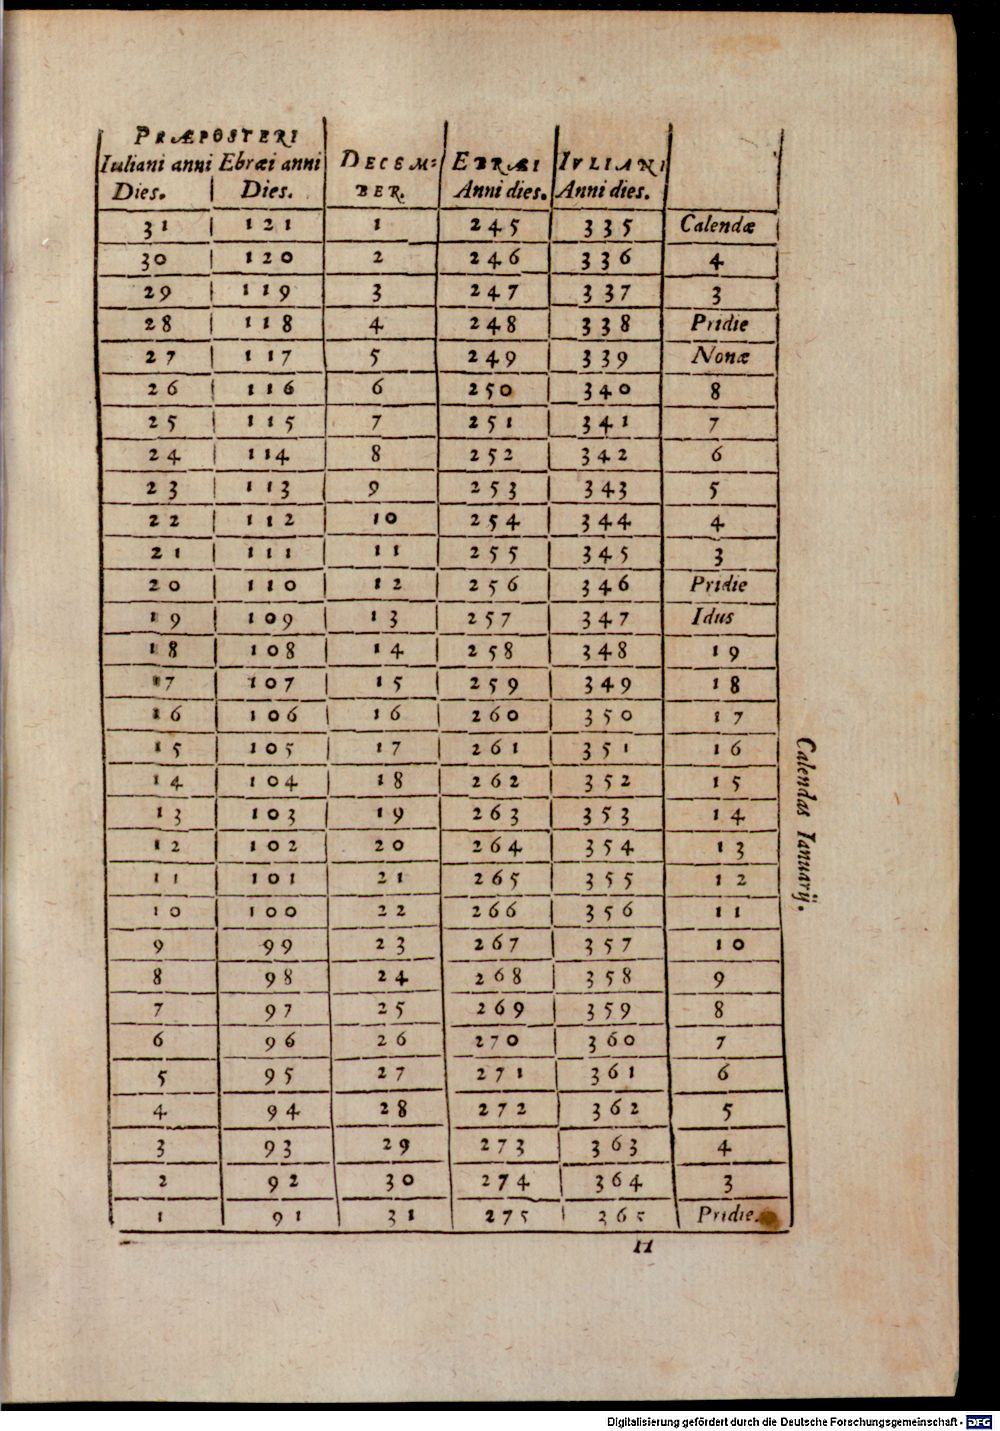 PRÆPOSTERI
Iuliani anni Ebræi anni DECEM= EBRÆI IVLIANI
Dies. Dies. BER. Anni dies. Anni dies.
31 121 1 245 335 Calendæ
30 120 2 246 336 4
29 119 3 247 337 3
28 118 4 248 338 Pridie
27 117 5 249 339 Nonæ
26 116 6 250 340 8
25 115 7 251 341 7
24 114 8 252 342 6
23 113 9 253 343 5
22 112 10 254 344 4
21 111 11 255 345 3
20 110 12 256 346 Pridie
19 109 13 257 347 Idus
18 108 14 258 348 19
17 107 15 259 349 18
16 106 16 260 350 17
15 105 17 261 351 16
14 104 18 262 352 15
13 103 19 263 353 14
12 102 20 264 354 13
11 101 21 265 355 12
10 100 22 266 356 11
9 99 23 267 357 10
8 98 24 268 358 9
7 97 25 269 359 8
6 96 26 270 360 7
5 95 27 271 361 6
4 94 28 272 362 5
3 93 29 273 363 4
2 92 30 274 364 3
1 91 31 275 365 Pridie.
Calendas Ianuarij.
II
Digitalisierung gefördert durch die Deutsche Forschungsgemeinschaft - DFG